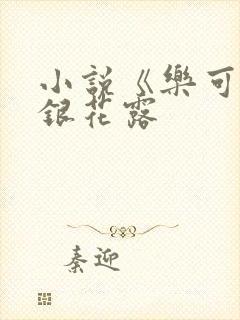 小說《樂可
銀花露
秦迎